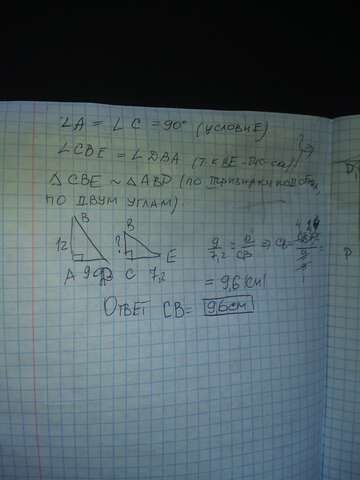 ∠A = ∠C = 90° (УСЛОВИЕ)
∠CBE = ∠DBA (Т.К BE - БИС-СА)
△ CBE ~ △ ABD (ПО ПРИЗНАКУ ПОДОБИЯ,
ПО ДВУМ УГЛАМ).
B
12
A 9 D
B
?
C 7,2 E
= 9,6 (см)
ОТВЕТ CB = 9,6 см